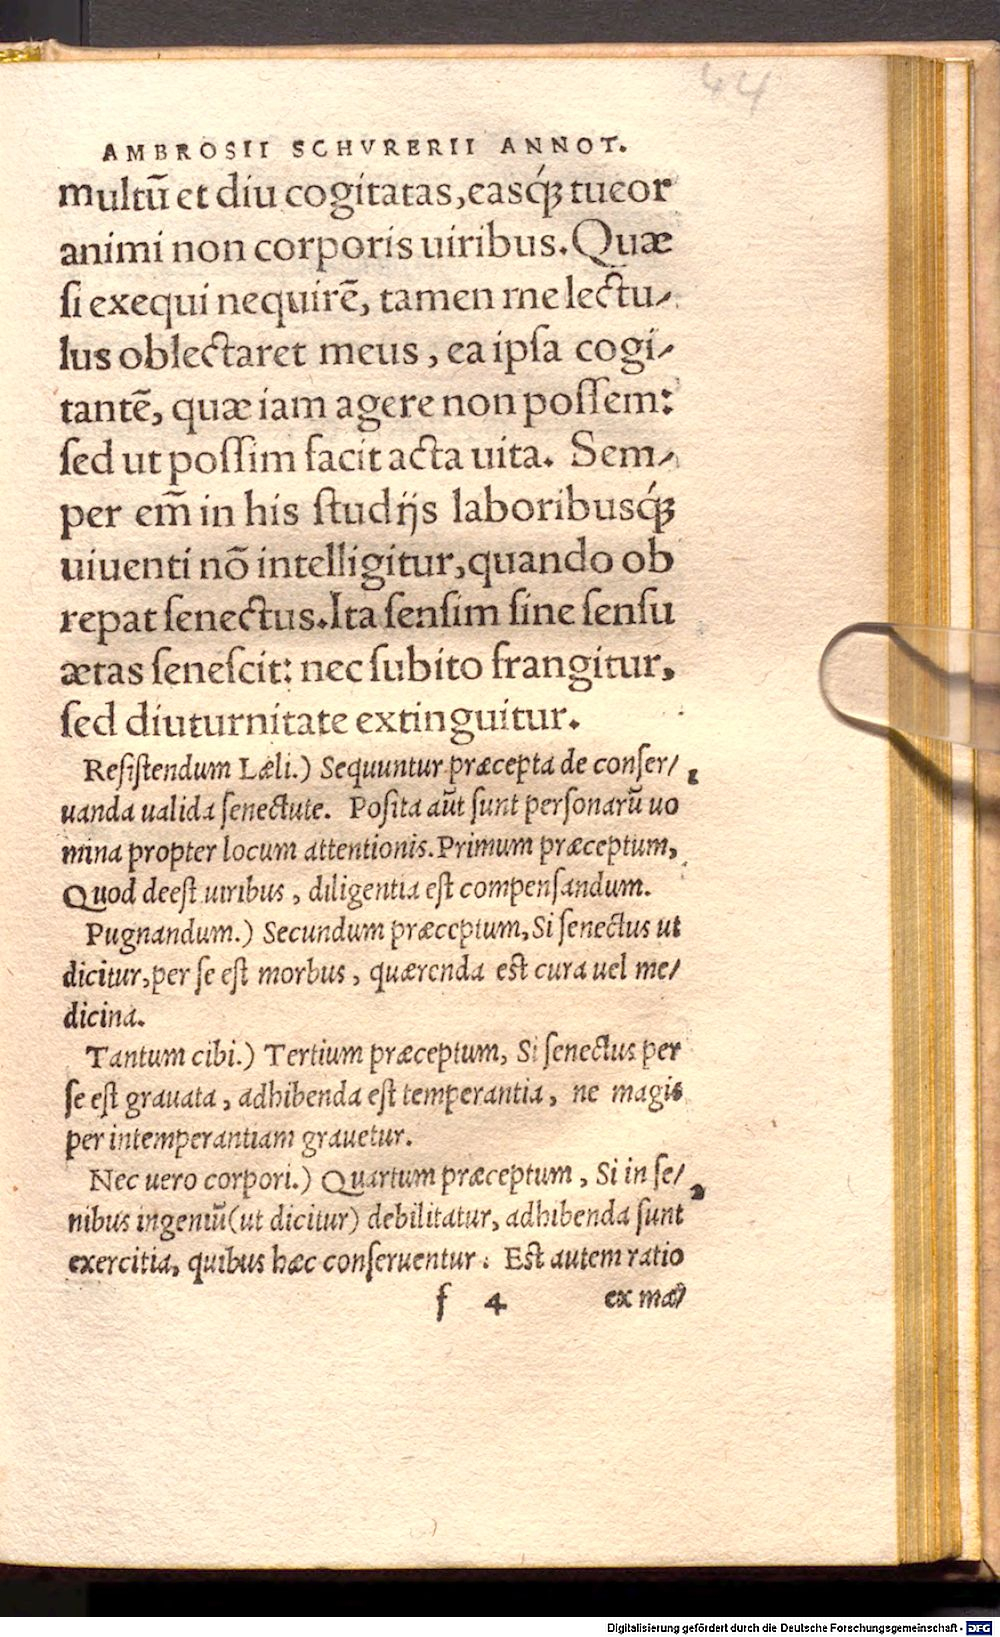 44
AMBROSII SCHVRERII ANNOT.
multũ et diu cogitatas, easq́ꝫ tueor
animi non corporis uiribus. Quæ
ſi exequi nequirẽ, tamen me lectu⸗
lus oblectaret meus, ea ipſa cogi⸗
tantẽ, quæ iam agere non poſſem:
ſed ut poſſim facit acta uita. Sem⸗
per em̃ in his ſtudijs laboribusq́ꝫ
uiuenti nõ intelligitur, quando ob
repat ſenectus. Ita ſenſim ſine ſenſu
ætas ſeneſcit: nec ſubito frangitur,
ſed diuturnitate extinguitur.
Reſiſtendum Læli.) Sequuntur præcepta de conſer/
uanda ualida ſenectute. Poſita aũt ſunt perſonarũ uo
mina propter locum attentionis. Primum præceptum,
Quod deeſt uiribus, diligentia eſt compenſandum.
Pugnandum.) Secundum præceptum, Si ſenectus ut
dicitur, per ſe eſt morbus, quærenda eſt cura uel me/
dicina.
Tantum cibi.) Tertium præceptum, Si ſenectus per
ſe eſt grauata, adhibenda eſt temperantia, ne magis
per intemperantiam grauetur.
Nec uero corpori.) Quartum præceptum, Si in ſe/
nibus ingeniũ (ut dicitur) debilitatur, adhibenda ſunt
exercitia, quibus hæc conſeruentur: Eſt autem ratio
f 4 ex ma/
Digitalisierung gefördert durch die Deutsche Forschungsgemeinschaft - DFG